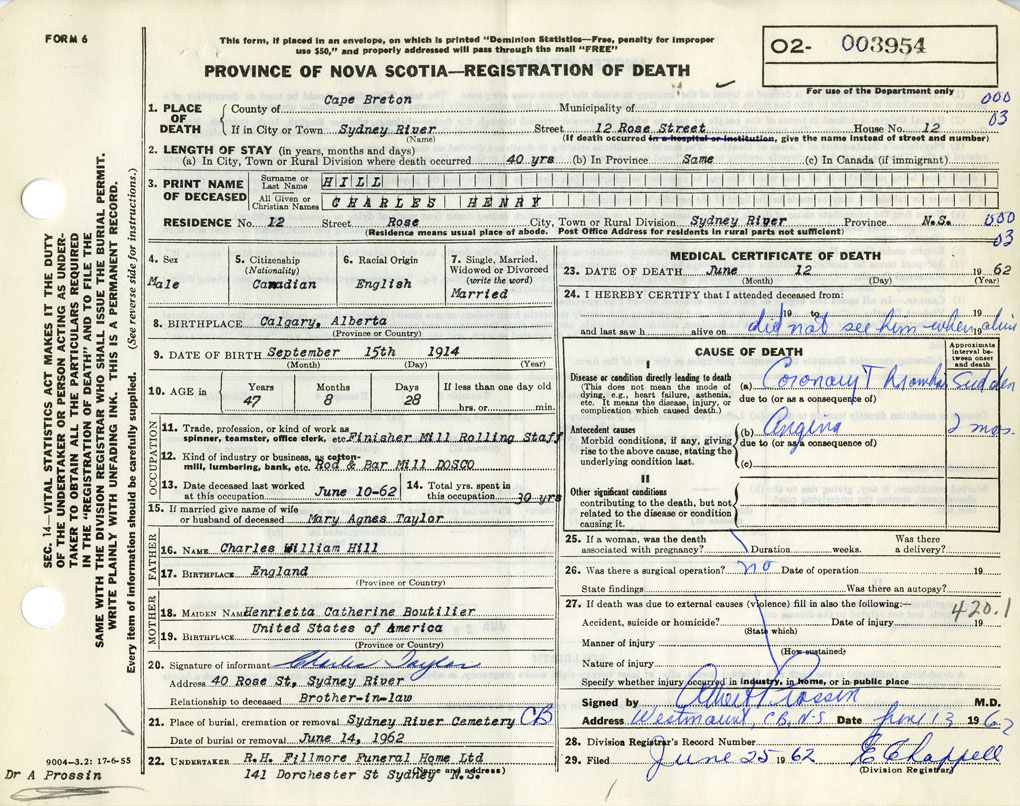 FORM 6
This form, if placed in an envelope, on which is printed "Dominion Statistics—Free, penalty for improper
use $50," and properly addressed will pass through the mail "FREE"
O2- 003954
PROVINCE OF NOVA SCOTIA—REGISTRATION OF DEATH
For use of the Department only
000
03
1. PLACE OF DEATH { County of Cape Breton Municipality of
If in City or Town Sydney River Street 12 Rose Street House No. 12
(Name) (If death occurred in a hospital or institution, give the name instead of street and number)
2. LENGTH OF STAY (in years, months and days)
(a) In City, Town or Rural Division where death occurred 40 yrs (b) In Province Same (c) In Canada (if immigrant)
3. PRINT NAME OF DECEASED
Surname or Last Name HILL
All Given or Christian Names CHARLES HENRY
RESIDENCE No. 12 Street Rose City, Town or Rural Division Sydney River Province N.S. 000
03
(Residence means usual place of abode. Post Office Address for residents in rural parts not sufficient)
4. Sex
Male
5. Citizenship
(Nationality)
Canadian
6. Racial Origin
English
7. Single, Married,
Widowed or Divorced
(write the word)
Married
8. BIRTHPLACE Calgary, Alberta
(Province or Country)
9. DATE OF BIRTH September 15th 1914
(Month) (Day) (Year)
10. AGE in
Years
47
Months
8
Days
28
If less than one day old
hrs. or min.
OCCUPATION
11. Trade, profession, or kind of work as
spinner, teamster, office clerk, etc. Finisher Mill Rolling Staff
12. Kind of industry or business, as cotton-
mill, lumbering, bank, etc. Rod & Bar Mill DOSCO
13. Date deceased last worked
at this occupation June 10-62
14. Total yrs. spent in
this occupation 30 yrs
15. If married give name of wife
or husband of deceased Mary Agnes Taylor
FATHER
16. NAME Charles William Hill
17. BIRTHPLACE England
(Province or Country)
MOTHER
18. MAIDEN NAME Henrietta Catherine Boutilier
19. BIRTHPLACE United States of America
(Province or Country)
20. Signature of informant Charles Taylor
Address 40 Rose St, Sydney River
Relationship to deceased Brother-in-law
21. Place of burial, cremation or removal Sydney River Cemetery CB
Date of burial or removal June 14, 1962
22. UNDERTAKER R.H. Fillmore Funeral Home Ltd
141 Dorchester St Sydney N.S.
(Name and address)
MEDICAL CERTIFICATE OF DEATH
23. DATE OF DEATH June 12 1962
(Month) (Day) (Year)
24. I HEREBY CERTIFY that I attended deceased from:
19 to
and last saw h alive on did not see him when alive 19
CAUSE OF DEATH
Approximate
interval be-
tween onset
and death
I
Disease or condition directly leading to death
(This does not mean the mode of
dying, e.g., heart failure, asthenia,
etc. It means the disease, injury, or
complication which caused death.)
(a) Coronary Sudden
due to (or as a consequence of)
Antecedent causes
Morbid conditions, if any, giving
rise to the above cause, stating the
underlying condition last.
(b) Angina 2 mos.
due to (or as a consequence of)
(c)
II
Other significant conditions
contributing to the death, but not
related to the disease or condition
causing it.
25. If a woman, was the death
associated with pregnancy? Duration weeks. Was there
a delivery?
26. Was there a surgical operation? no Date of operation 19
State findings Was there an autopsy?
27. If death was due to external causes (violence) fill in also the following:— 420.1
Accident, suicide or homicide? Date of injury 19
(State which)
Manner of injury
(How sustained)
Nature of injury
Specify whether injury occurred in industry, in home, or in public place
Signed by Albert Prossin M.D.
Address Westmount, CB, N.S. Date June 13 1962
28. Division Registrar's Record Number
29. Filed June 25 1962 E Chappell
(Division Registrar)
SEC. 14—VITAL STATISTICS ACT MAKES IT THE DUTY
OF THE UNDERTAKER OR PERSON ACTING AS UNDER-
TAKER TO OBTAIN ALL THE PARTICULARS REQUIRED
IN THE "REGISTRATION OF DEATH" AND TO FILE THE
SAME WITH THE DIVISION REGISTRAR WHO SHALL ISSUE THE BURIAL PERMIT.
WRITE PLAINLY WITH UNFADING INK. THIS IS A PERMANENT RECORD.
Every item of information should be carefully supplied. (See reverse side for instructions.)
9004-3.2: 17-6-55
Dr A Prossin